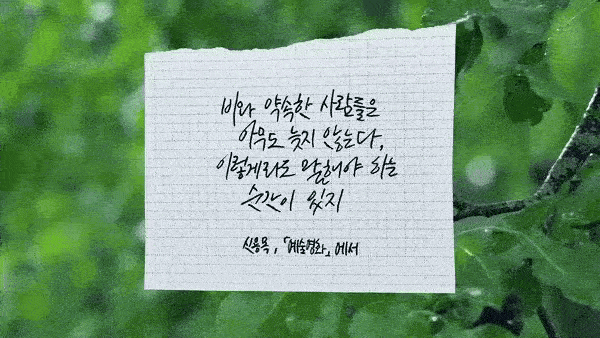 비와 약속한 사람들은
아무도 늦지 않는다,
이렇게라도 말해야 하는
순간이 있지
신용목, 「예술영화」에서